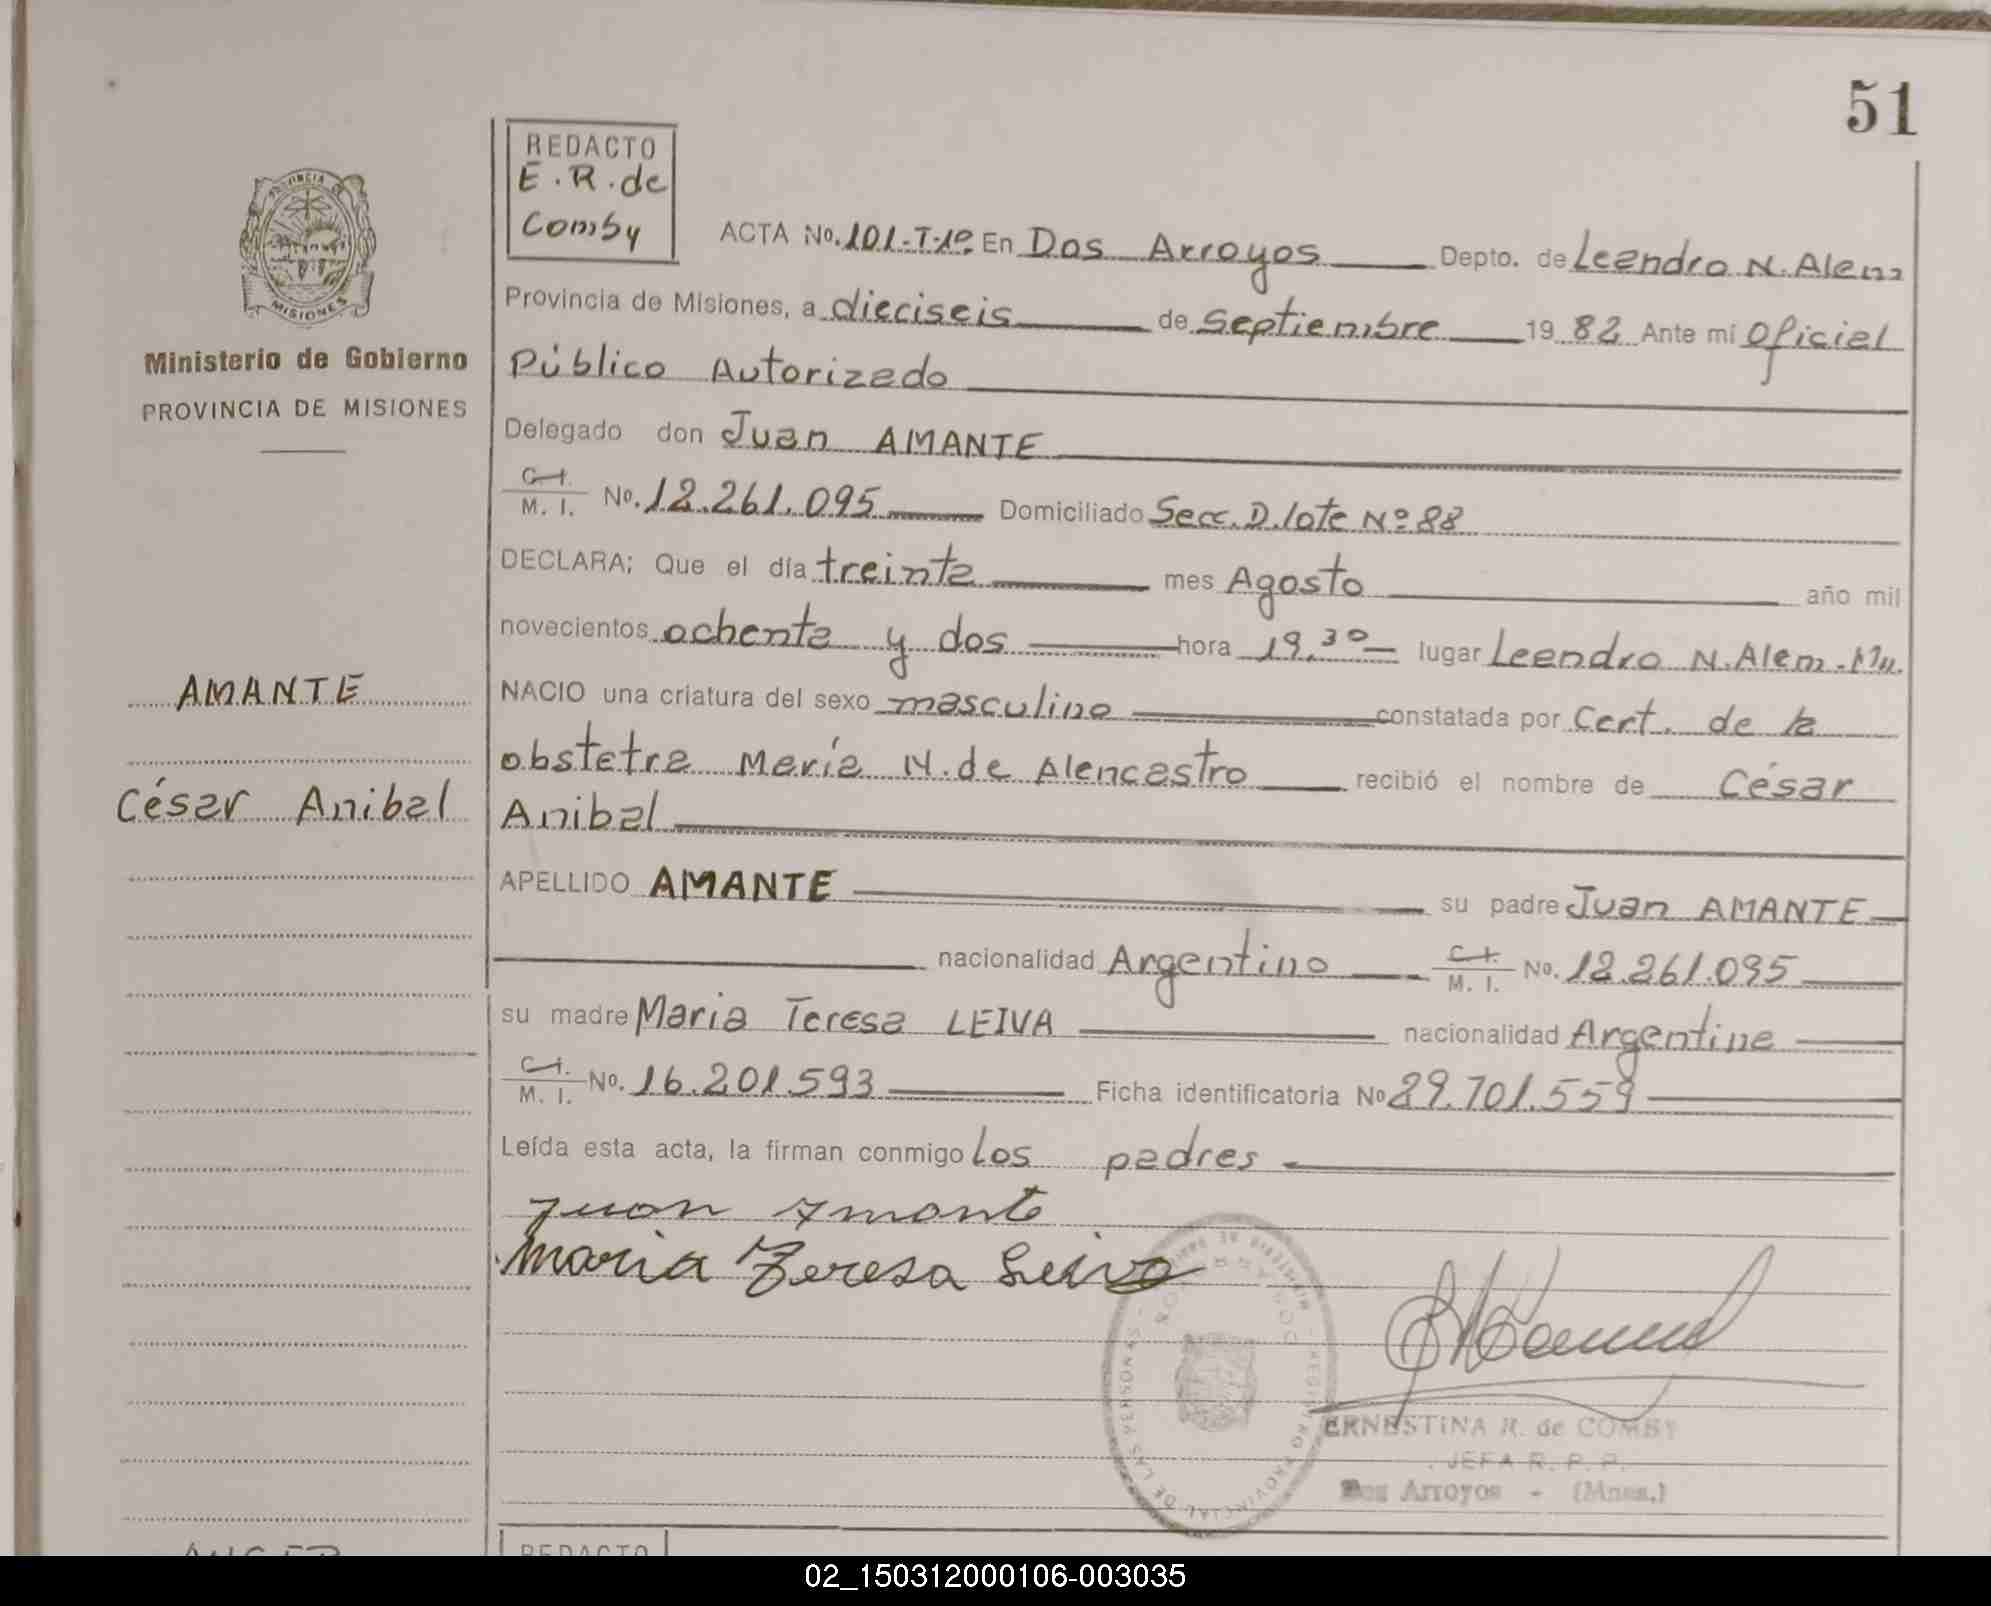 51
REDACTO
E. R. de
Comby
PROVINCIA DE
MISIONES
Ministerio de Gobierno
PROVINCIA DE MISIONES
ACTA No. 101-T-1º En Dos Arroyos Depto. de Leandro N. Alem
Provincia de Misiones, a dieciseis de Septiembre 19 82 Ante mí Oficial
Público Autorizado
Delegado don Juan AMANTE
C.I. M. I. No. 12.261.095 Domiciliado Secc. D. lote Nº 88
DECLARA; Que el día treinta mes Agosto año mil
novecientos ochenta y dos hora 19,30 lugar Leandro N. Alem.
AMANTE
NACIO una criatura del sexo masculino constatada por Cert. de la
obstetra María N. de Alencastro recibió el nombre de César
César Anibal
Anibal
APELLIDO AMANTE su padre Juan AMANTE
nacionalidad Argentino C.I. M. I. No. 12.261.095
su madre Maria Teresa LEIVA nacionalidad Argentina
C.I. M. I. No. 16.201.593 Ficha identificatoria No 29.701.559
Leída esta acta, la firman conmigo los padres
Juan Amante
Maria Teresa Leiva
REGISTRO PROVINCIAL DE LAS PERSONAS
ERNESTINA R. de COMBY
JEFA R. P. P.
Dos Arroyos - (Mnes.)
REDACTO
02_150312000106-003035